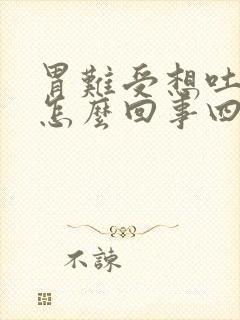 胃難受想吐
怎麼回事四
不諫